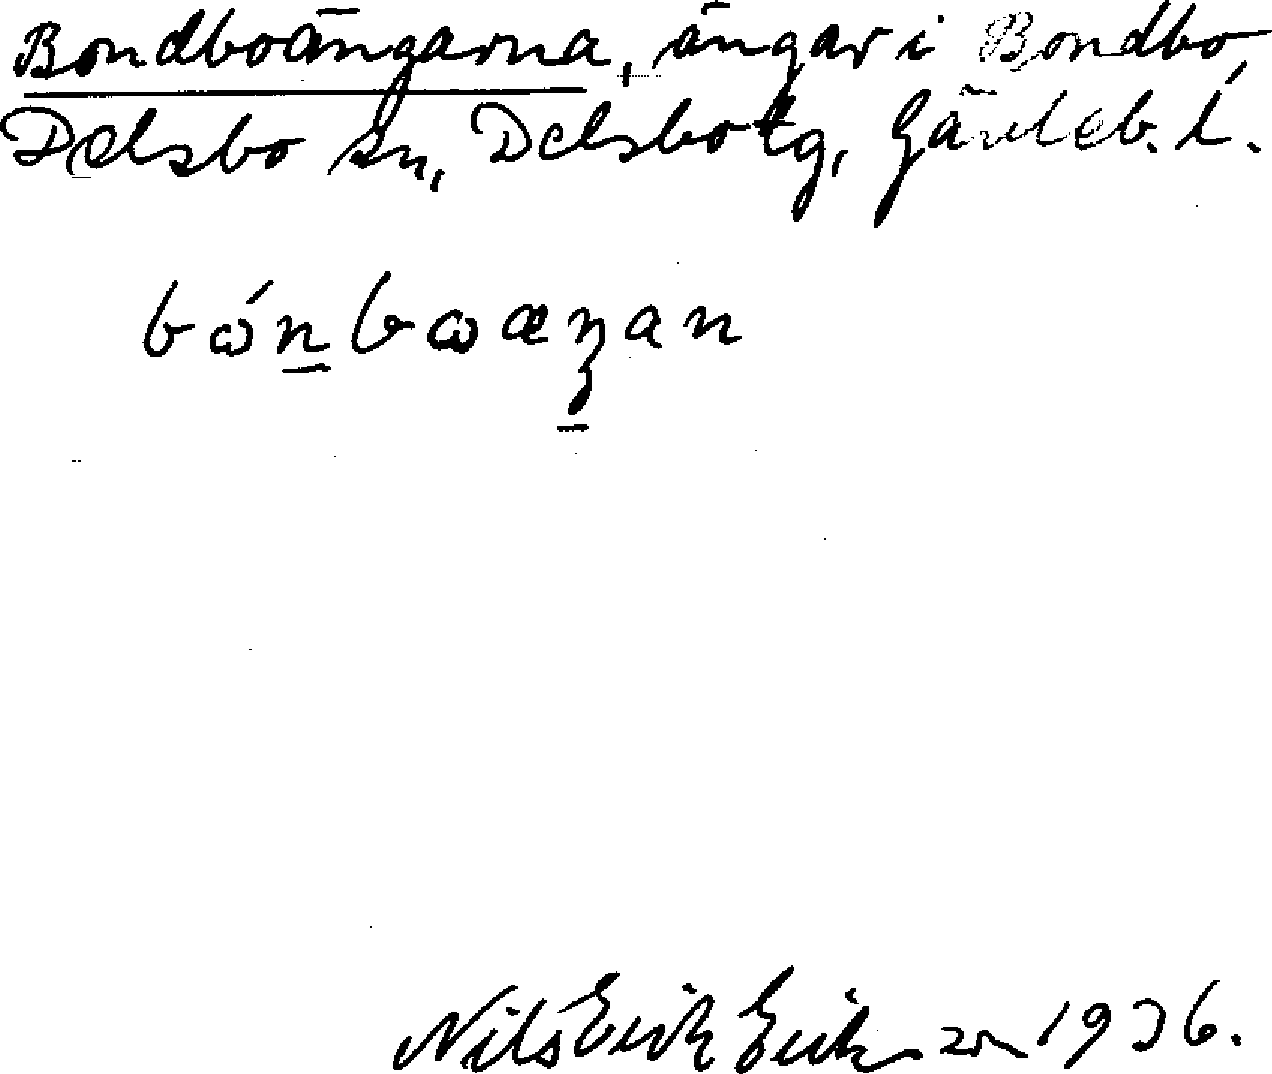 Bondboängarna, ängar i Bondbo,
Delsbo sn, Delsbo tg, Gävleb. l.
bónboæŋan
Nils Erik Eriksson 1936.